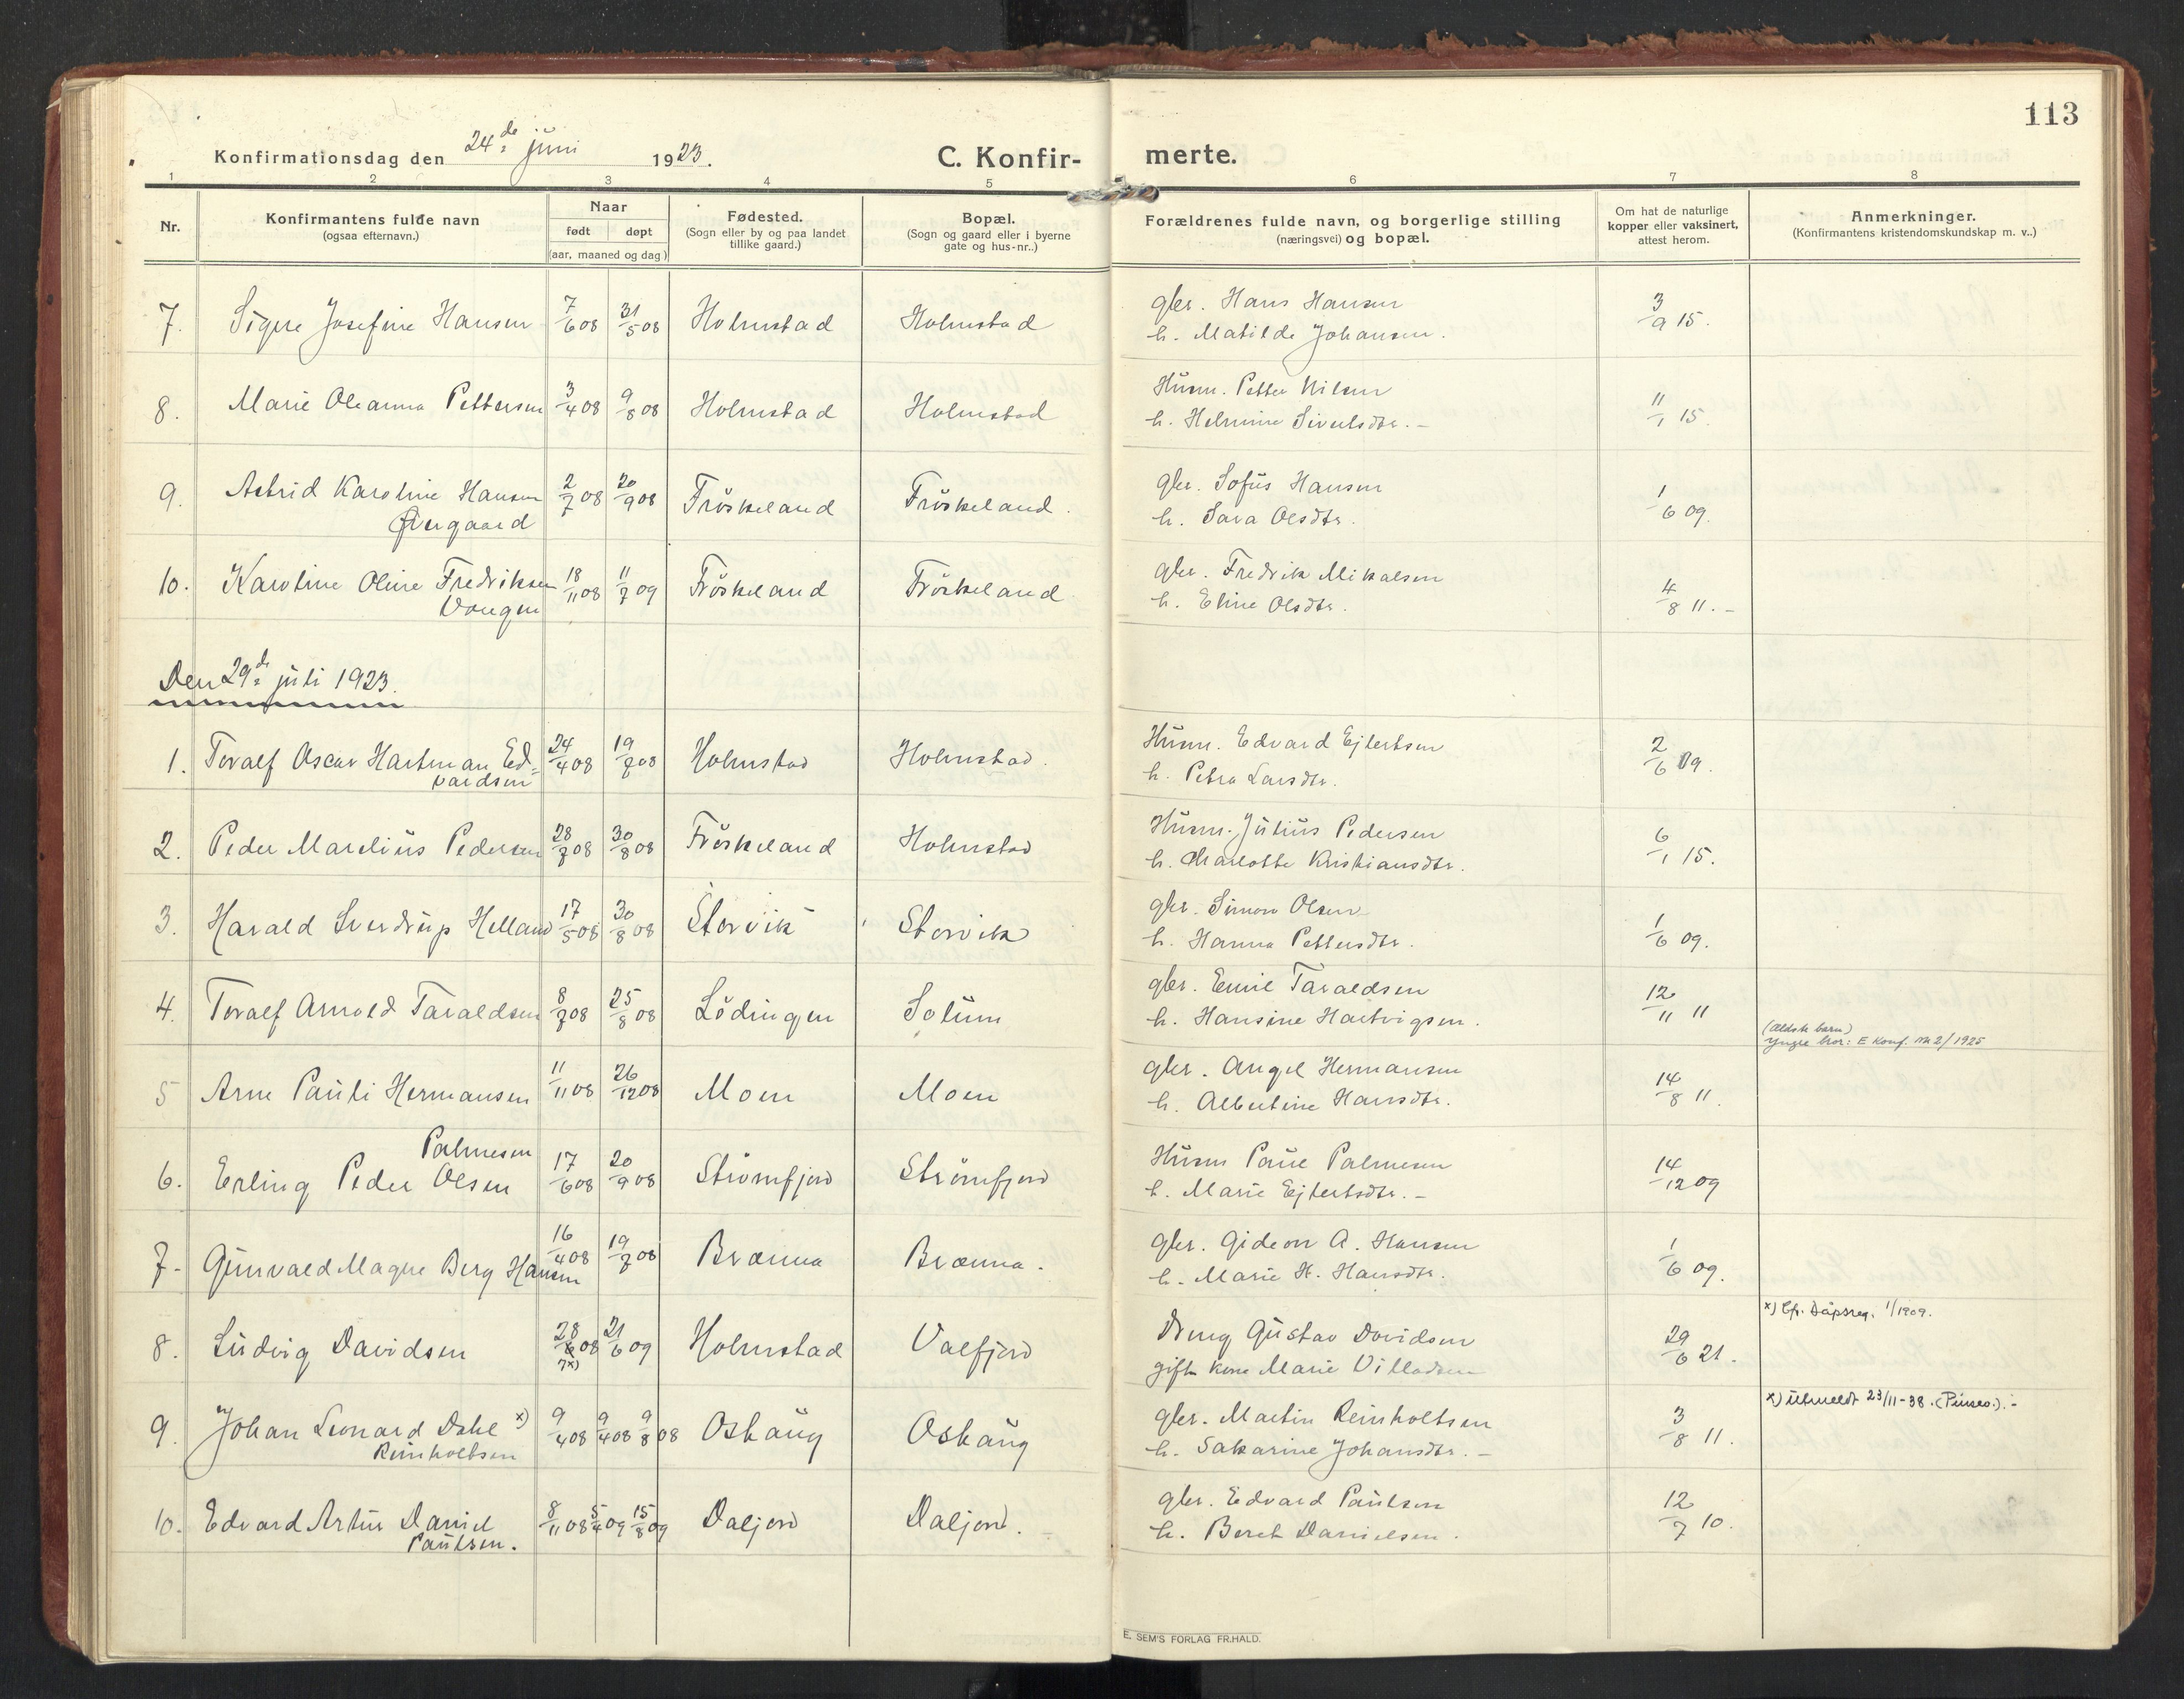 113
Konfirmationsdag den 24de juni 1923.
C. Konfir-
merte.
1 2 3 4 5 6 7 8
Nr.
Konfirmantens fulde navn
(ogsaa efternavn.)
Naar
født døpt
(aar, maaned og dag)
Fødested.
(Sogn eller by og paa landet
tillike gaard.)
Bopæl.
(Sogn og gaard eller i byerne
gate og hus-nr..)
Forældrenes fulde navn, og borgerlige stilling
(næringsvei) og bopæl.
Om hat de naturlige
kopper eller vaksinert,
attest herom.
Anmerkninger.
(Konfirmantens kristendomskundskap m. v..)
7. Signe Josefine Hansen 7/6 08 31/5 08 Holmstad Holmstad gbr. Hans Hansen 3/9 15.
h. Matilde Johansen.
8. Marie Oleanna Pettersen 3/4 08 9/8 08 Holmstad Holmstad Husm. Petter Nilsen 11/1 15.
h. Helmine Sivertsdtr. -
9. Astrid Karoline Hansen 2/7 08 20/9 08 Fröskeland Fröskeland. gbr. Sofus Hansen 1/6 09.
Øvergaard h. Sara Olsdtr.
10. Karoline Oline Fredriksen 18/11 08 11/7 09 Fröskeland Fröskeland gbr. Fredrik Mikalsen 4/8 11. -
Vangen h. Eline Olsdtr.
Den 29de juli 1923.
1. Toralf Oscar Hartman Ed- 24/4 08 19/7 08 Holmstad Holmstad. Husm. Edvard Ejlertsen 2/6 09.
vardsen h. Petra Larsdtr.
2. Peder Marelius Pedersen 28/7 08 30/8 08 Fröskeland Holmstad Husm. Julius Pedersen 6/1 15.
h. Charlotte Kristiansdtr.
3. Harald Sverdrup Helland 17/5 08 30/8 08 Storvik Storvik gbr. Simon Olsen 1/6 09.
h. Hanna Pettersdtr.
4. Toralf Arnold Taraldsen 8/7 08 25/8 08 Lödingen Solum gbr. Emil Taraldsen 12/11 11
h. Hansine Hartvigsen.
(Ældste barn)
Yngre bror: E Konf. nr 2/1925
5 Arne Pauli Hermansen 11/11 08 26/12 08 Moen Moen gbr. Angel Hermansen 14/8 11.
h. Albertine Hansdtr.
Palmesen
6. Erling Peder Olsen 17/6 08 20/9 08 Strömfjord Strömfjord Husm Paul Palmesen 14/12 09
h. Marie Ejlertsdtr. -
7. Gunvald Magne Berg Hansen 16/4 08 19/7 08 Brænna Brænna. gbr. Gideon A. Hansen 1/6 09.
h. Marie H. Hansdtr.
x) Cfr. Dåpsreg. 1/1909.
8. Ludvig Davidsen 28/6 08 21/6 09 Holmstad Valfjord Dreng Gustav Davidsen 29/6 21.
7x) gift kone Marie Villadsen
x) Utmeldt 23/11-38. (Pinsev.). -
9. Johan Leonard Dahl x) 9/4 08 9/4 08 9/8 08 Oshaug Oshaug gbr. Martin Reinholtsen 3/8 11.
Reinholtsen h. Sakarine Johansdtr. -
10. Edvard Artur Daniel 8/11 08 5/4 09 15/8 09 Daljord Daljord. gbr. Edvard Paulsen 12/7 10.
Paulsen. h. Beret Danielsen.
E. SEM'S FORLAG FR.HALD.